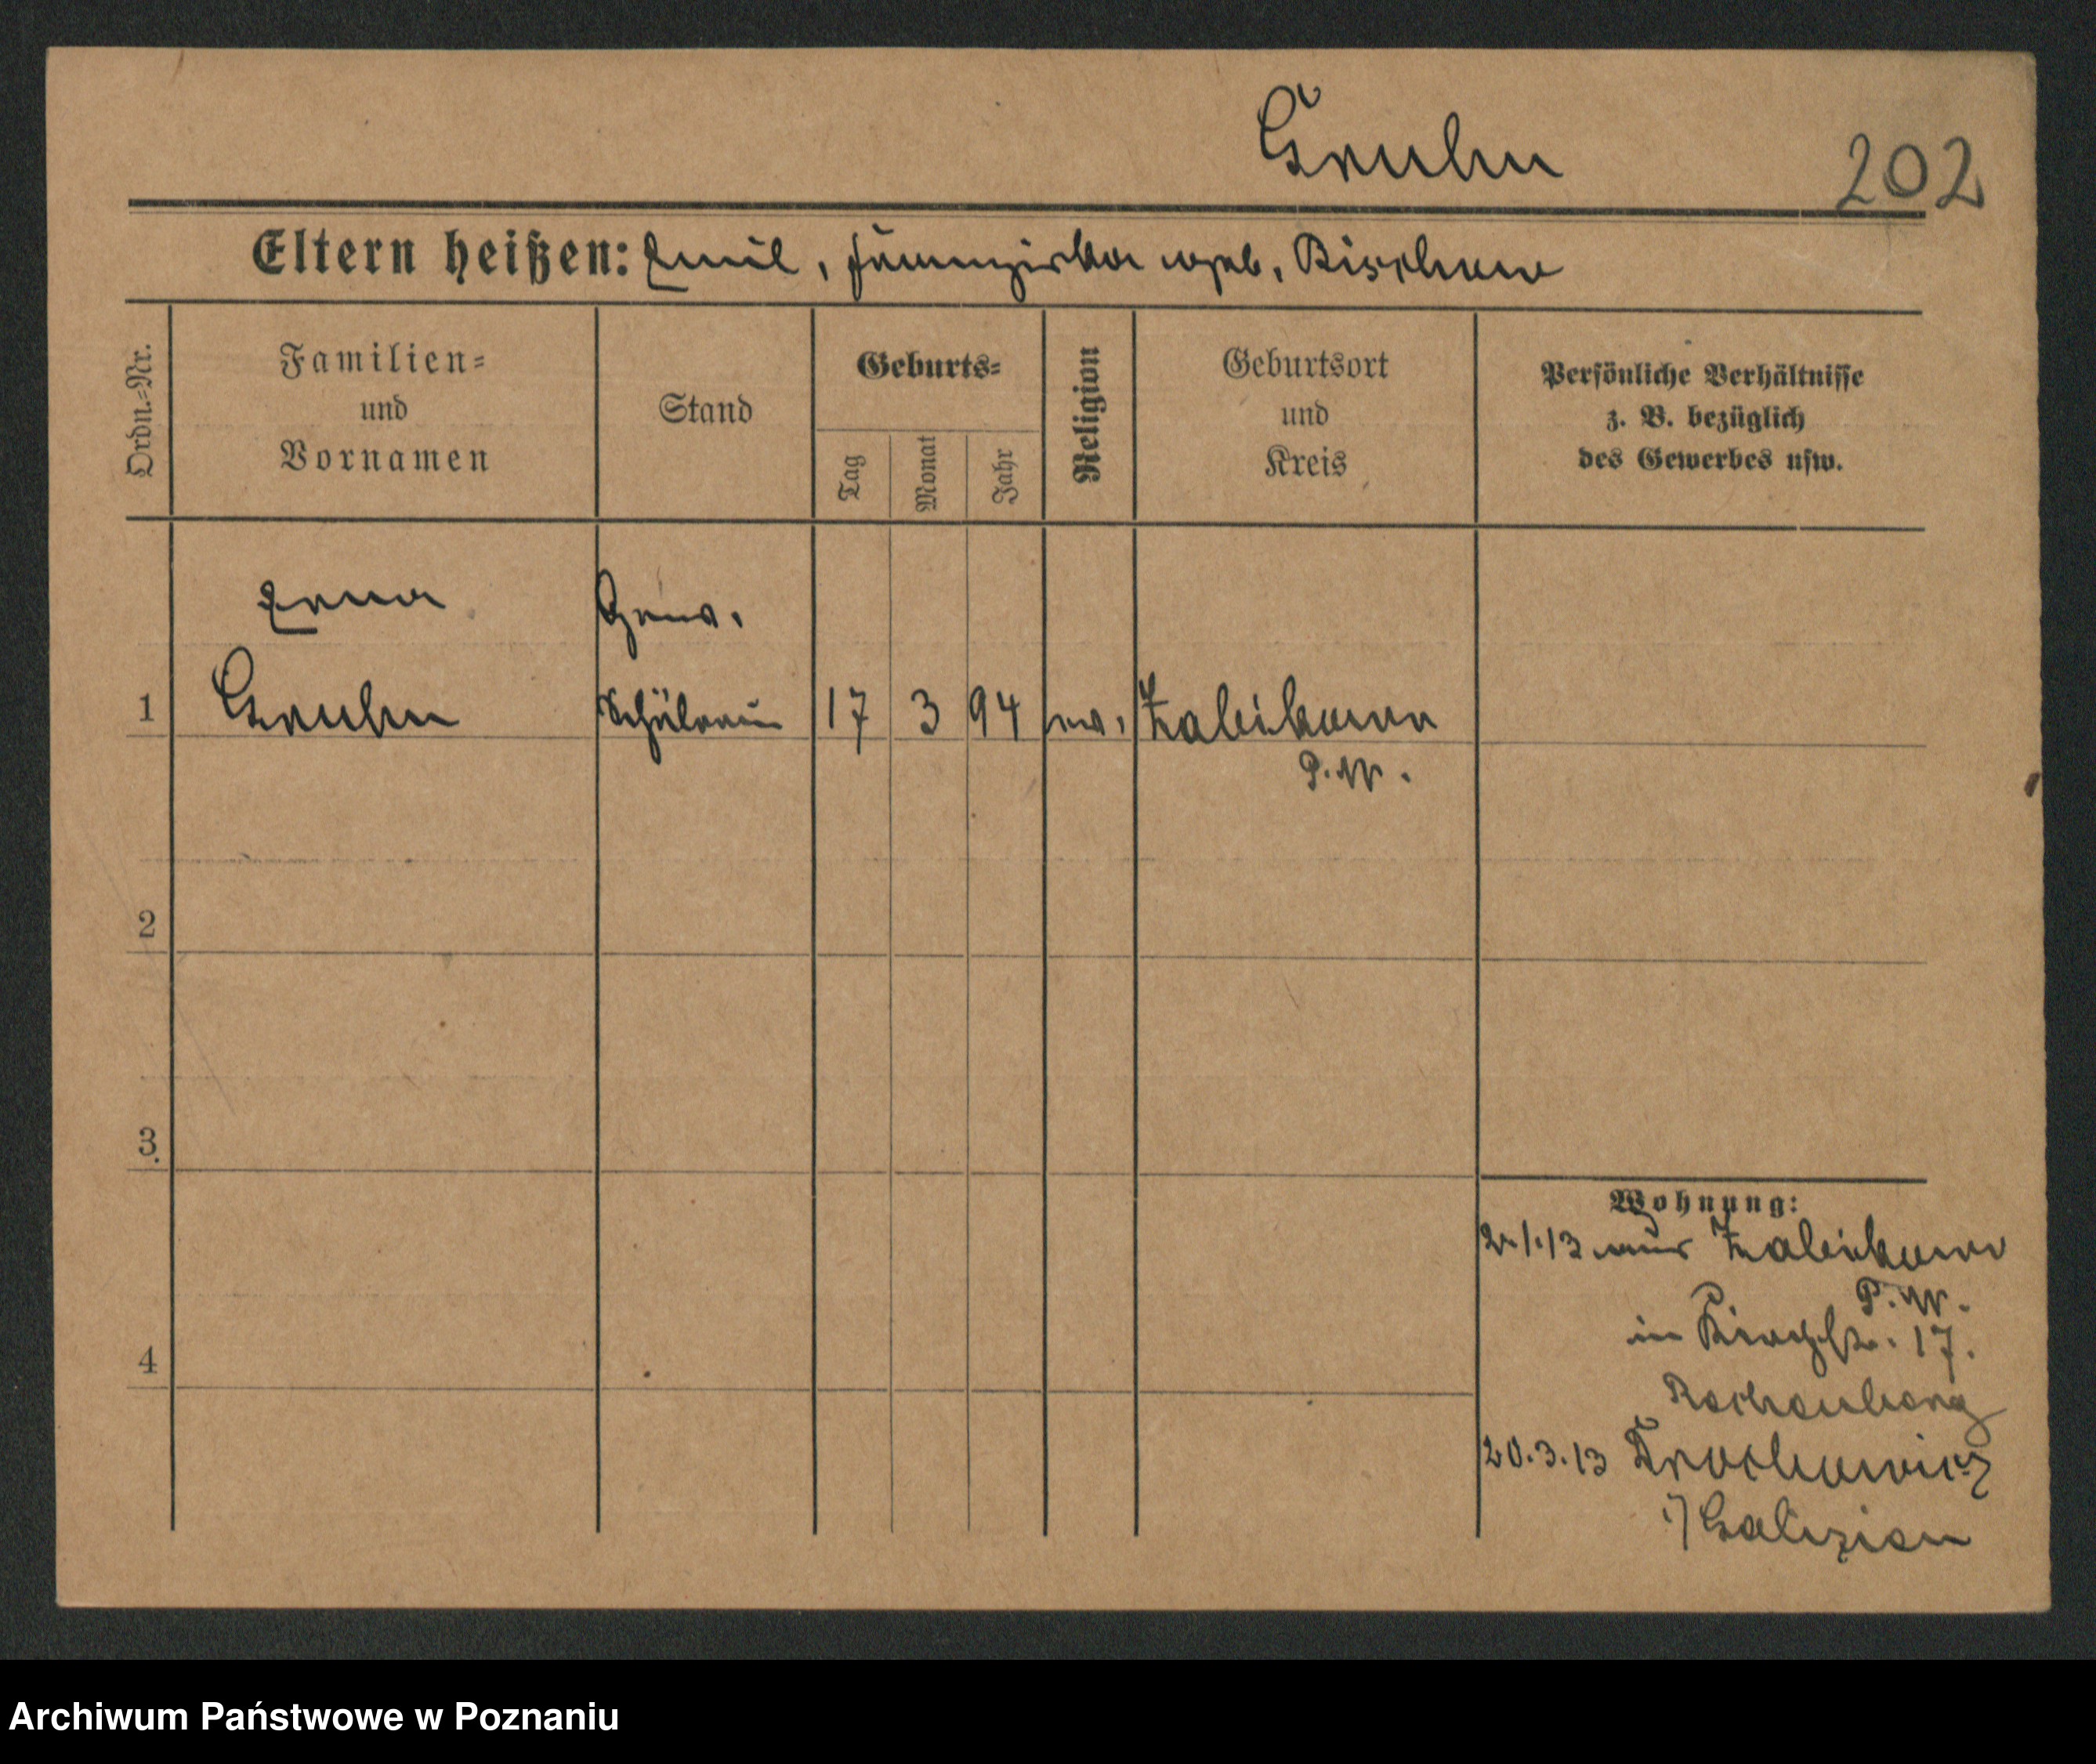 Gruhn
202
Eltern heißen: Emil, Franziska geb. Bischow
Ordn.-Nr.
Familien=
und
Vornamen
Stand
Geburts=
Tag
Monat
Jahr
Religion
Geburtsort
und
Kreis
Persönliche Verhältnisse
z. B. bezüglich
des Gewerbes usw.
Erna
Gew.
1 Gruhn Schülerin 17 3 94 ev. Zabikowo
P.W.
2
3
4
Wohnung:
2.1.13 aus Zabikowo
P.W.
in Kirchstr. 17.
20.3.13
i/Galizien
Archiwum Państwowe w Poznaniu